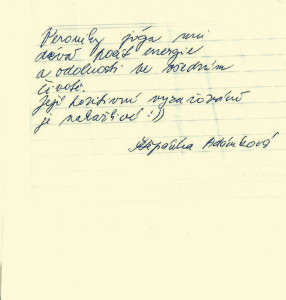 Veroniky jóga mi
dává pocit energie
a odolnosti ve všedním
životě.
Její pozitivní vyzařování
je nakažlivé :))
Adámková